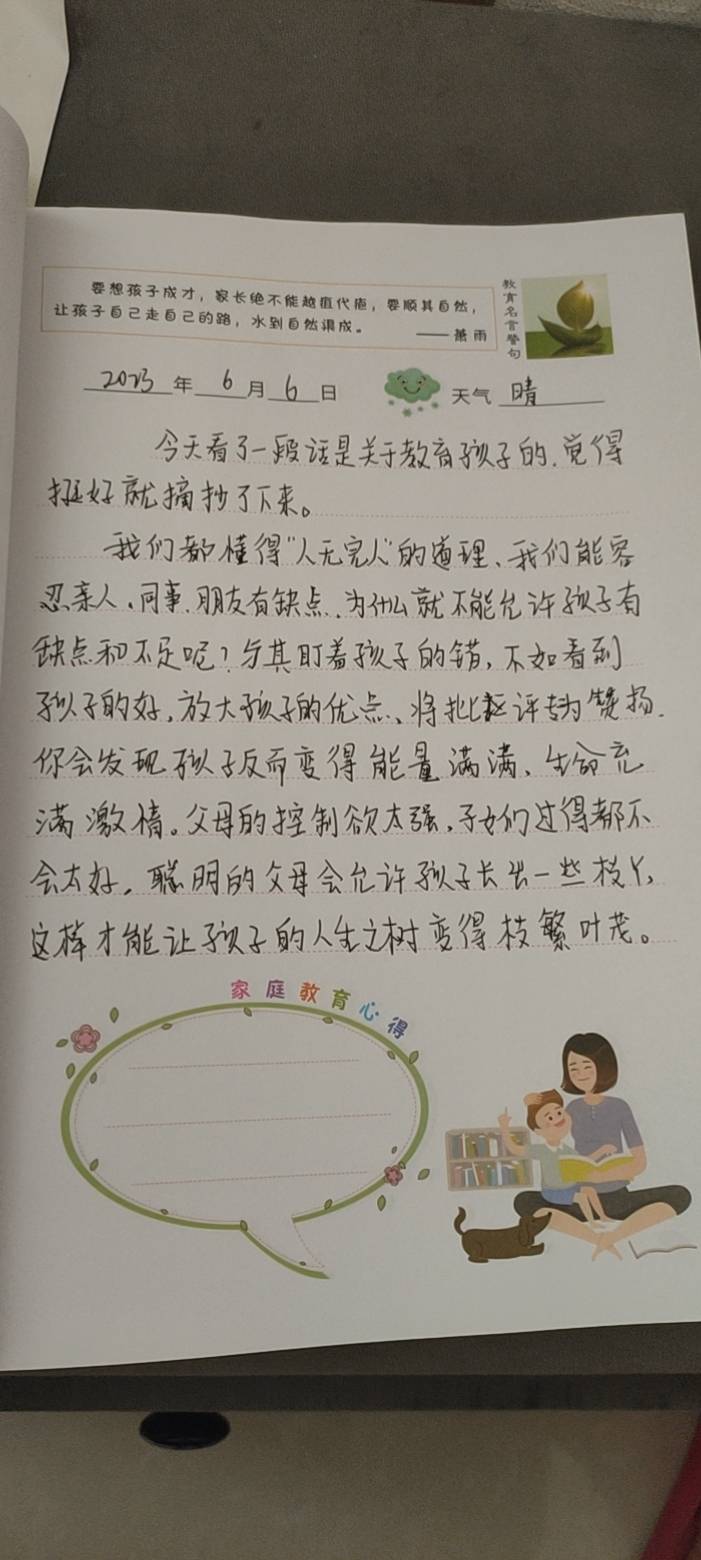 要想孩子成才，家长绝不能越俎代庖，要顺其自然，
让孩子自己走自己的路，水到自然渠成。
——萧雨
教育名言警句
2023年6月6日
天气 晴
今天看了一段话是关于教育孩子的，觉得
挺好就摘抄了下来。
我们都懂得"人无完人"的道理、我们能容
忍亲人、同事、朋友有缺点、为什么就不能允许孩子有
缺点和不足呢？与其盯着孩子的错，不如看到
孩子的好，放大孩子的优点、将批评转为赞扬.
你会发现孩子反而变得能量满满、生命充
满激情。父母的控制欲太强，子女们过得都不
会太好，聪明的父母会允许孩子长出一些枝丫，
这样才能让孩子的人生之树变得枝繁叶茂。
家庭教育心得